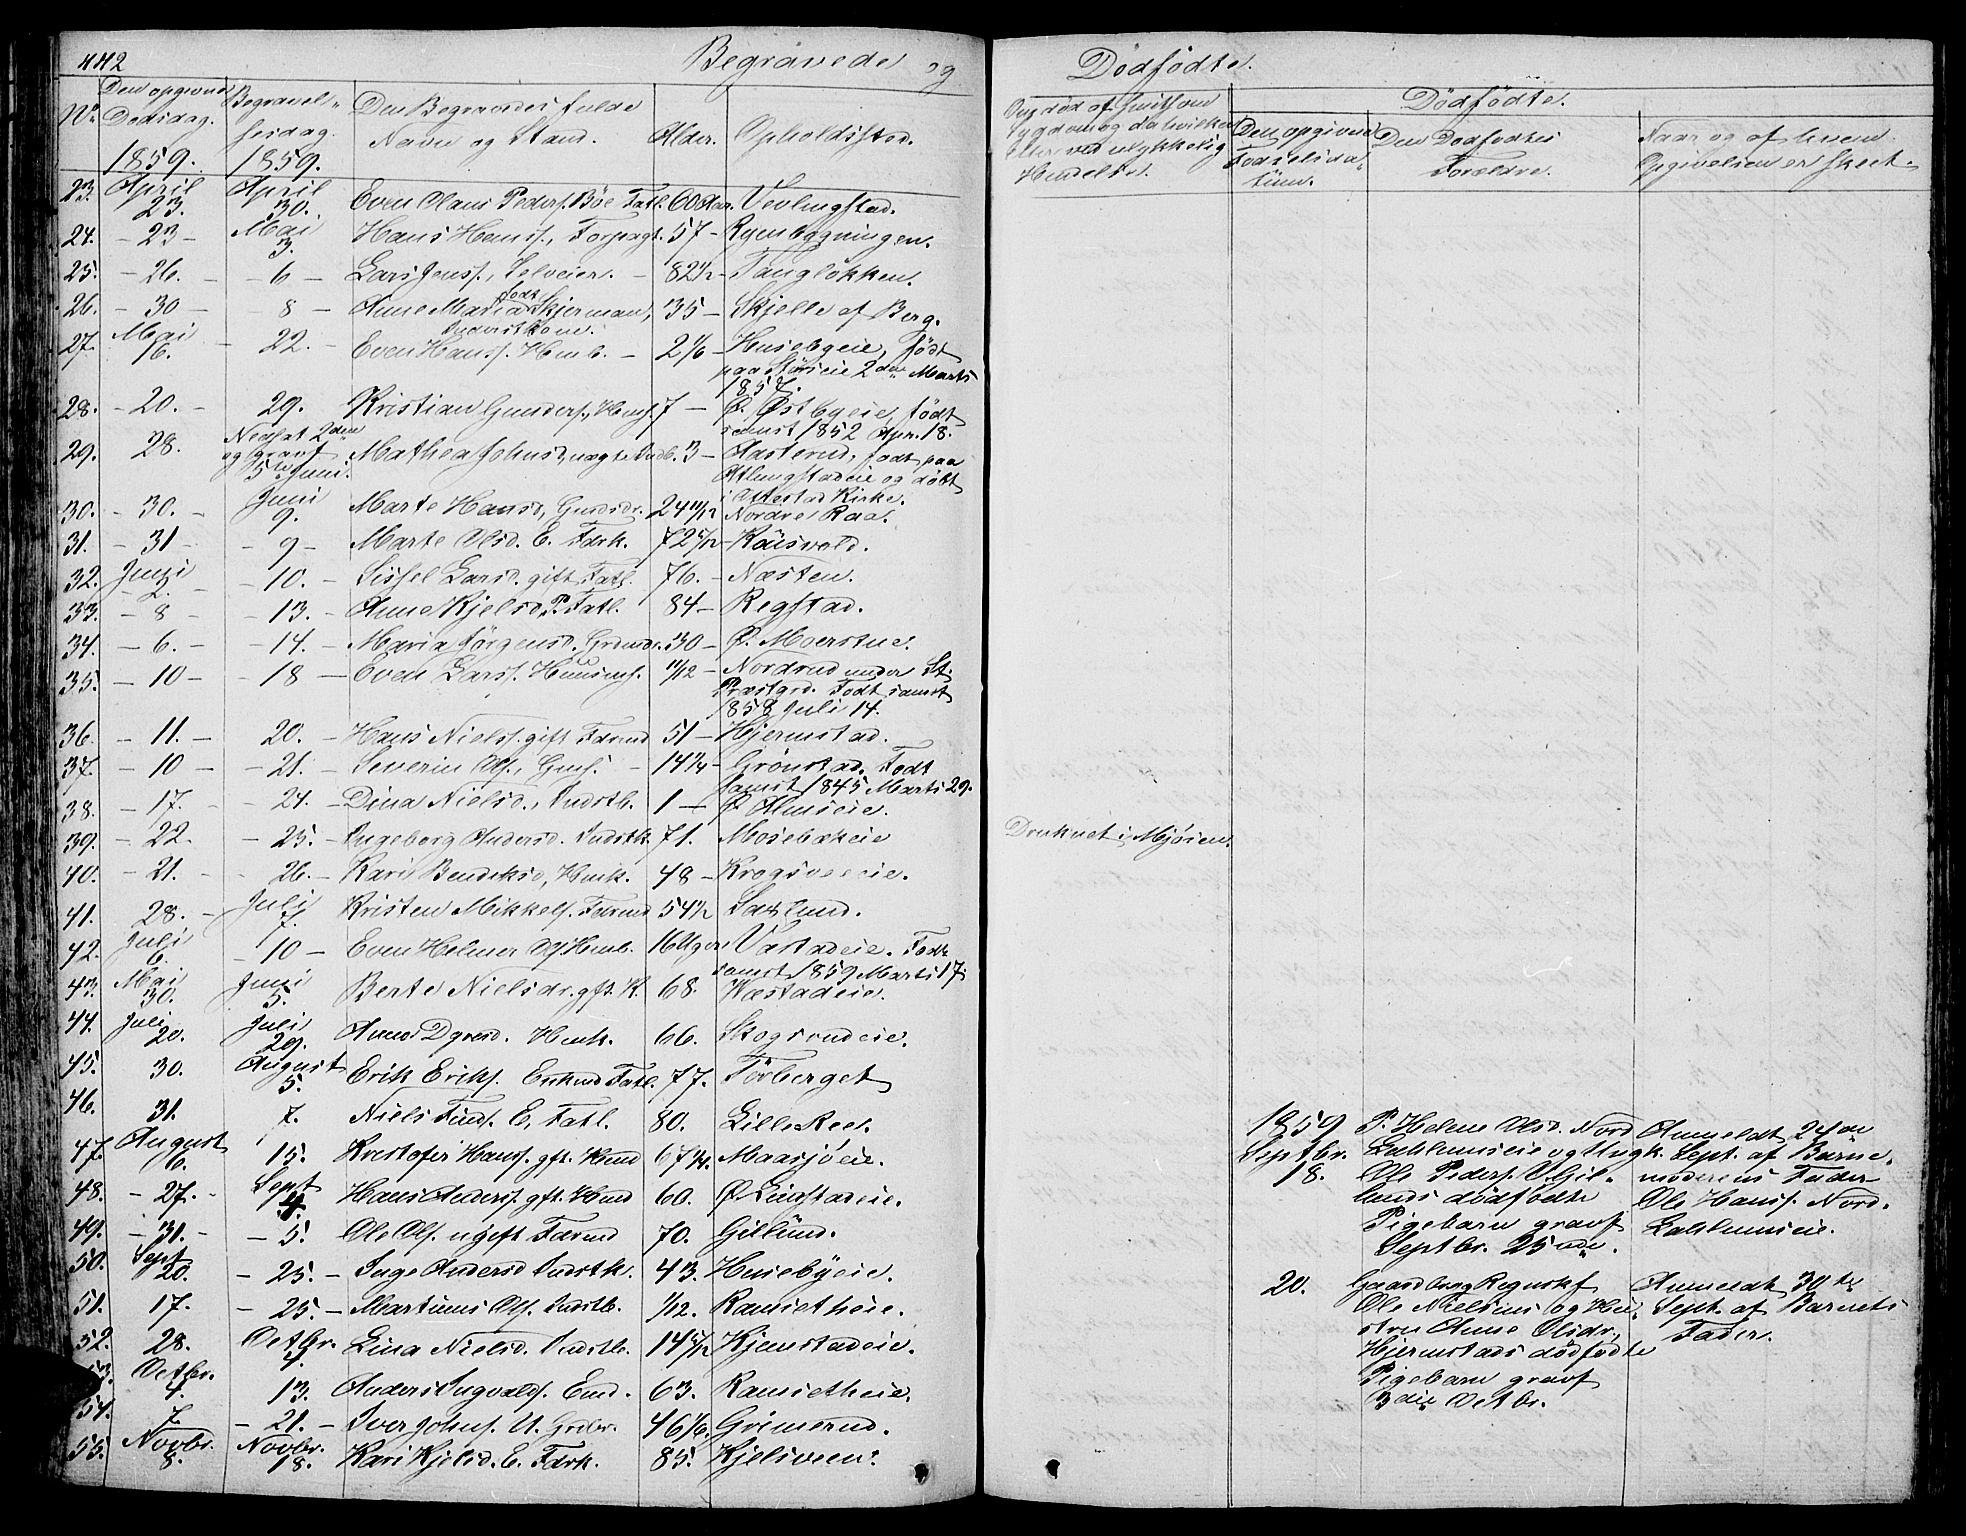 442 Begravede og Dödfödte.
No. Den opgivne Dødsdag. 1859. Begravelsesdag. 1859. Den Begravedes fulde Navn og Stand. Alder. Opholdssted.
23. April 23. April 30. Even Olaus Peders. Böe Fatl. 60 Aar. Vevlingstad.
24. - 23 - Mai 3. Hans Hanss., Forpagt. 57 - Rynbygningen.
25. - 26. - - 6 - Lars Jenss., Selveier. - 82 1/2 - Tangløkken.
26. - 30 - 8 - Anne Maria født Skjerman, Inderstkone. 35 - Skjelle af Berg.
27. Mai 16. - 22. - Even Hanss. Hmb. - 2 1/6 - Husebyeie, født
paa Størseie 2den Marts
1857.
28. - 20. - 29. Kristian Gunders., Hms. 7 - Ø. Østbyeie, født
samst 1852 Apr. 18.
29. 28. Nedsat 2den og gravf 5te Juni. Mathea Johnsd, uægte Indb. 3 - Aasterud, født paa
Atlungstadeie og døbt
i Ottestad Kirke.
30. - 30. - Juni 9. Marte Hansd, Gmdsdr. 24 11/12 Nordre Raa.
31. - 31 - - 9 - Marte Olsd. E. Fdrk. 72 5/12 - Kausvold.
32. Juni 2. - 10. - Sissel Larsd. gift Fatl. 76. - Næsten.
33. - 8 - - 13. - Anne Kjelsd, P. Fatl. 84 - Regstad.
34. - 6. - - 14. - Maria Jörgensd. Grdmdr. 30 - Ø. Moerstue.
35. - 10 - - 18 - Even Larss. Huusms. 11/12 - Nordrud under St.
Præstgrd. Født samst
1858 Juli 14.
36. - 11. - 20. - Hans Nielss. gift Fdrmd 51 - Hjermstad.
37. - 10 - - 21. - Severin Ols., Gms. - 14 1/4 - Grönstad. Født
samst 1845 Marts 29.
38. - 17. - - 24. - Dina Nielsd., Indstb. 1 - Ø. Almseie.
39. - 22. - - 25. - Ingeborg Andersd. Indstk. 71. Mosebækeie Druknet i Mjøsen.
40. - 21. - - 26. - Kari Bendiksd, Hmk. 48 - Krogsveeie.
41. 28. - Juli 7. Kristen Mikkels. Fdrmd 54 1/2 Saxlund.
42. Juli 6. - 10 - Even Helmer Ols. Hmb. 16 Uger Vastadeie. Født
samst 1859 Marts 17.
43. Mai 30. Juni 5. Berte Nielsdr. gft. K. 68. Kastadeie.
44. Juli 20. Juli 29. Anne Dyresd. Hmk. 66. Skogsrudeie.
45. 30. August 5. Erik Eriks. Enkmd Fatl. 77. Torberget
46. 31. 7. Niels Finds. E. Fatl. 80. Lille Ree.
47. August 6. 15. Kristofer Hanss. gft. Hmd 67 1/4. Maasjøeie.
48. - 27. - Sept 4. Hans Anderss. gft. Hmd 60. Ø Lingstadeie.
49. - 31. - - 5. Ole Ols. ugift Fdrmd 70. Gillund.
50. Sept 20. - 25. - Inge Andersd Indstk. 43. Husebyeie.
51. 17. - 25. - Martinus Ols. Indstb. 1/12. Ramsetheie.
52. 28. Octbr. 4. Lina Nielsd. Indstb. 14 5/12 Kjemstadeie.
53. Octbr. 4. 13. Anders Ingvalds. Emd. 63. Ramsetheie.
54. 7. - 21. - Iver Johns. U. Grdbr. 46 1/6. Grimerud.
55. Novbr. 8. Novbr. 18. Kari Kjelsd. E. Fdrk. 85. Kjelsveen.
Dødfødte.
Om død af smitsom Sygdom og da hvilken eller ved ulykkelig Hendelse.
Den opgivne Fødselsdatum. Den Dødfødtes Forældre. Naar og af hvem Opgivelsen er skeet.
1859
Septbr. 18.
P. Helene Olsd. Nord
Lahlumseie og Ungk.
Ole Peders. Ulgil-
lunds dødfødte
Pigebarn gravf
Septbr. 25nde.
Anmeldt 24de
Sept. af Barne-
moderens Fader
Ole Hanss. Nord-
Lahlumseie.
20.
Gaardbrug Regnskf
Ole Nielsens og Hu-
stru Anne Olsdr,
Hjermstads dødfødte
Pigebarn gravf
3die Octbr.
Anmeldt 30te
Sept. af Barnets
Fader.